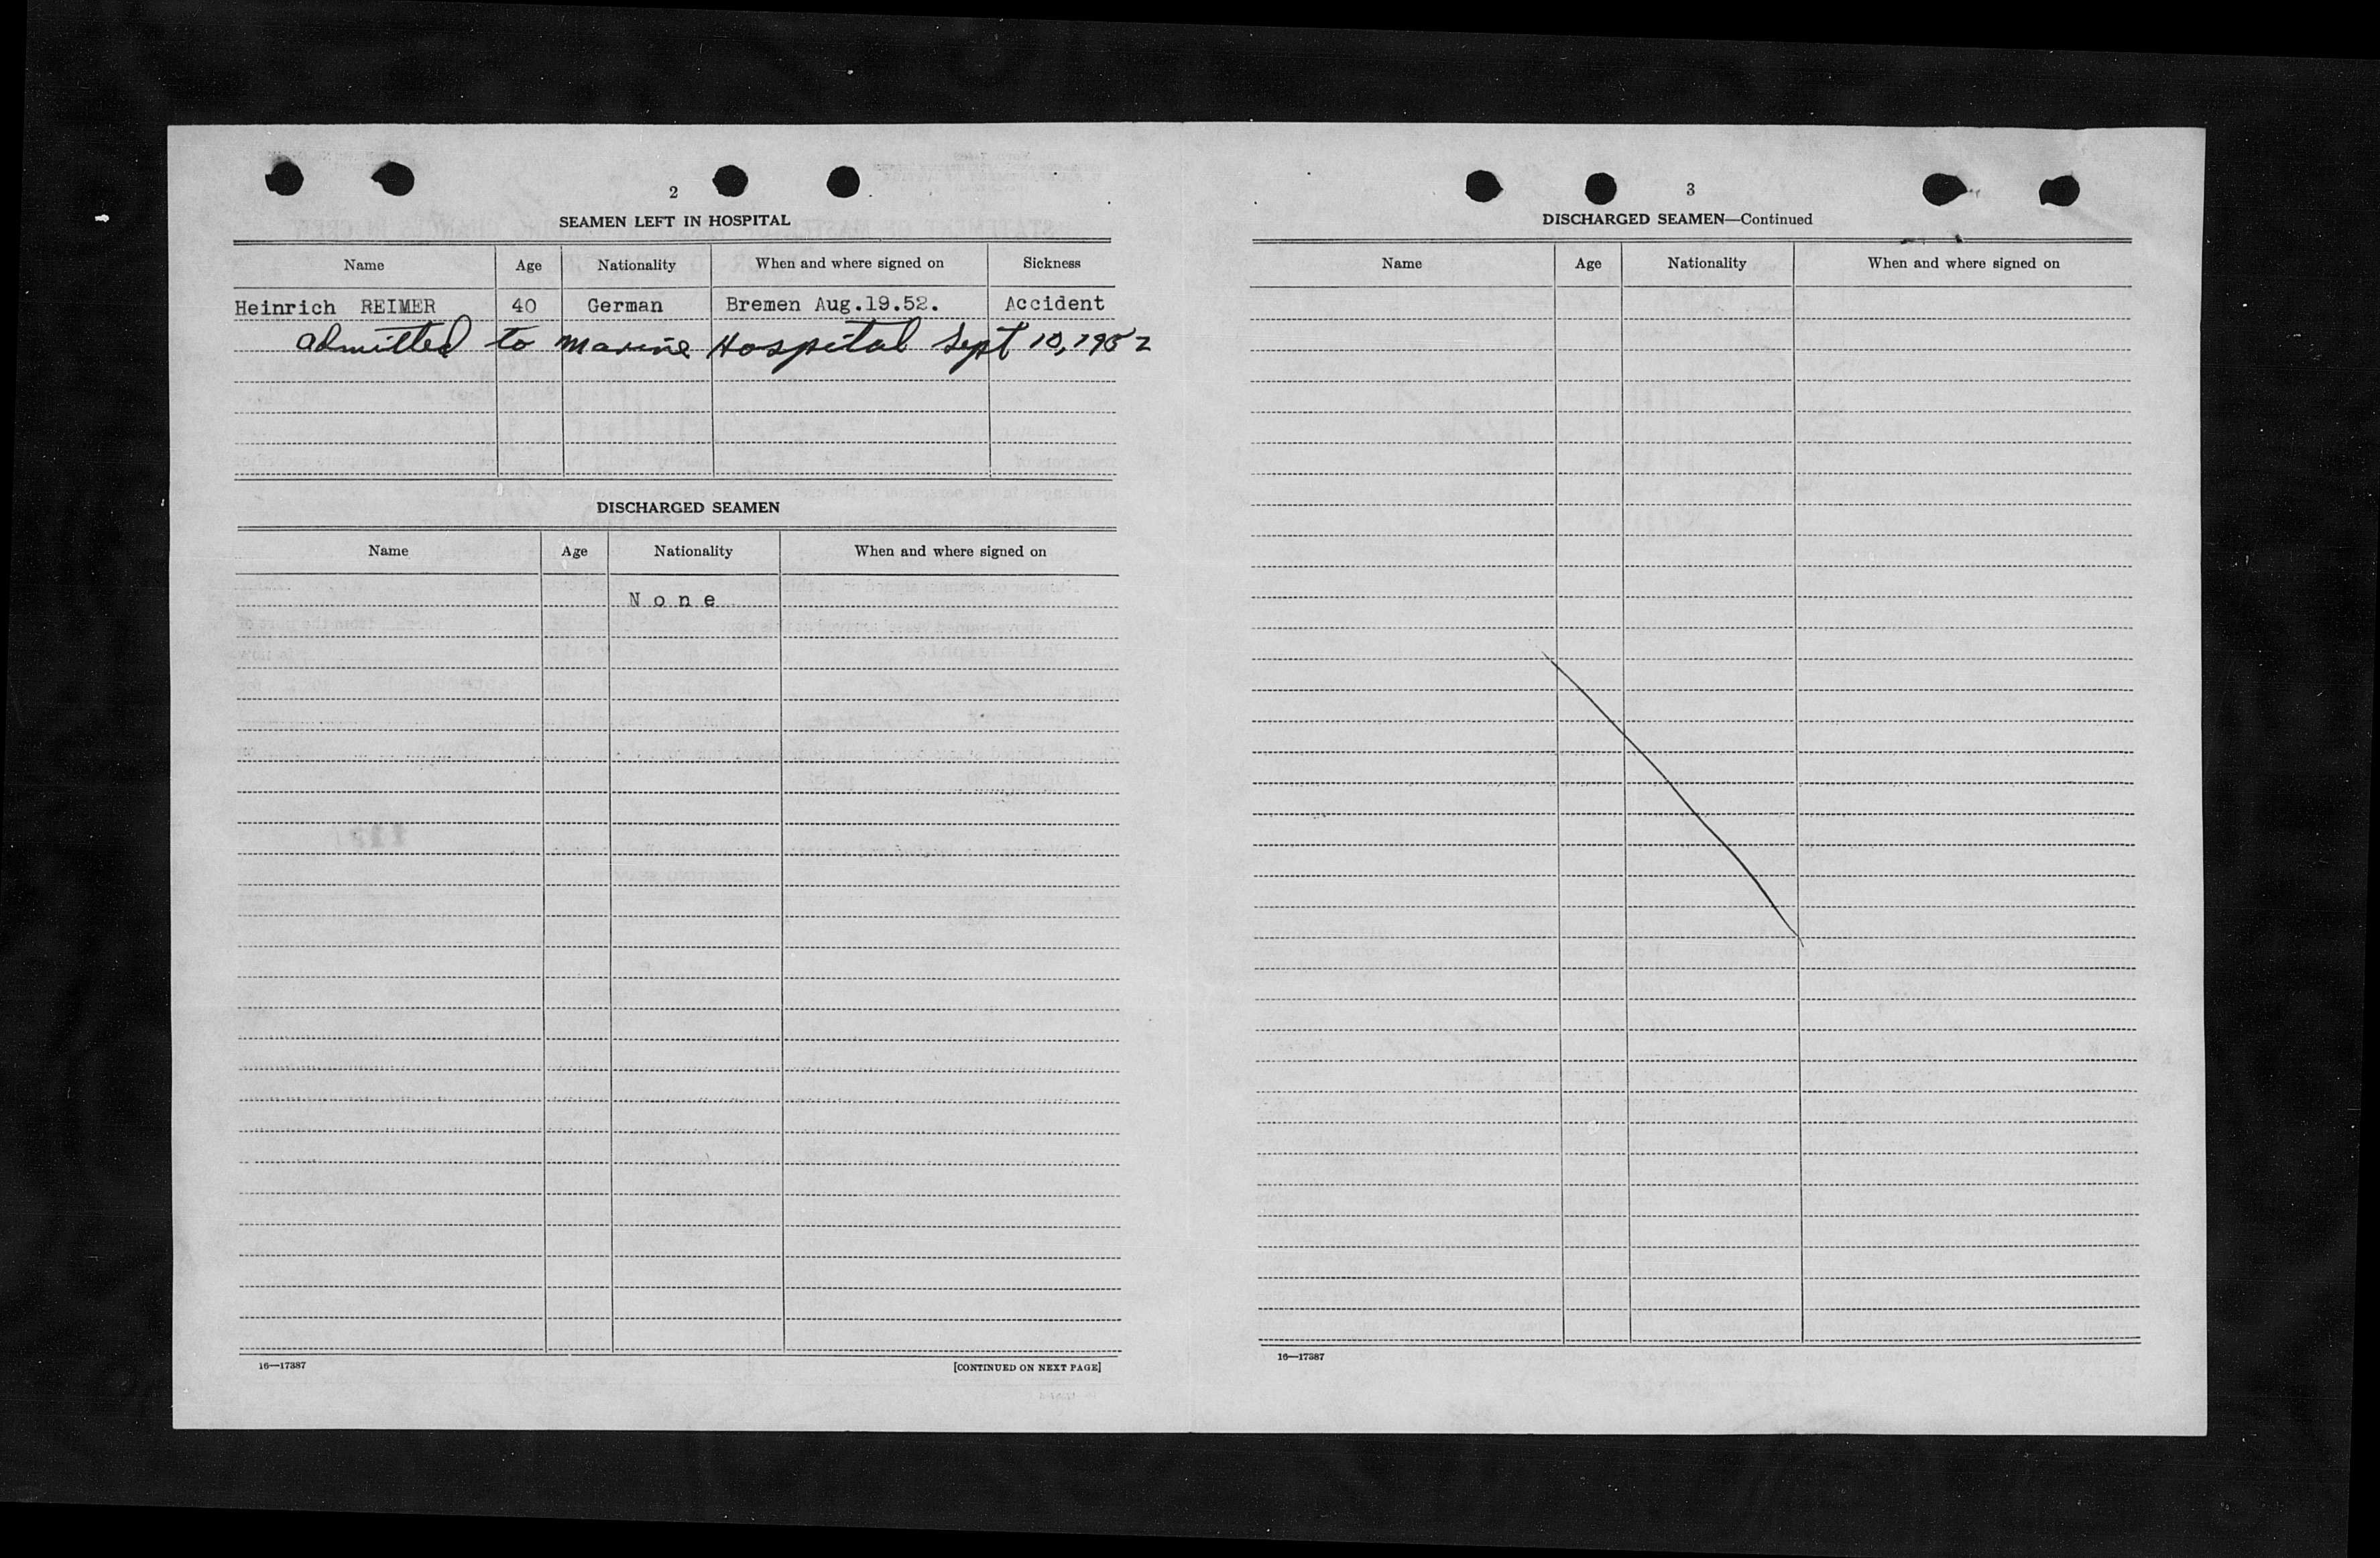 2
SEAMEN LEFT IN HOSPITAL
Name Age Nationality When and where signed on Sickness
Heinrich REIMER 40 German Bremen Aug.19.52. Accident
admitted to Marine Hospital Sept 10, 1952
DISCHARGED SEAMEN
Name Age Nationality When and where signed on
None
16—17387 [CONTINUED ON NEXT PAGE]
3
DISCHARGED SEAMEN—Continued
Name Age Nationality When and where signed on
16—17387